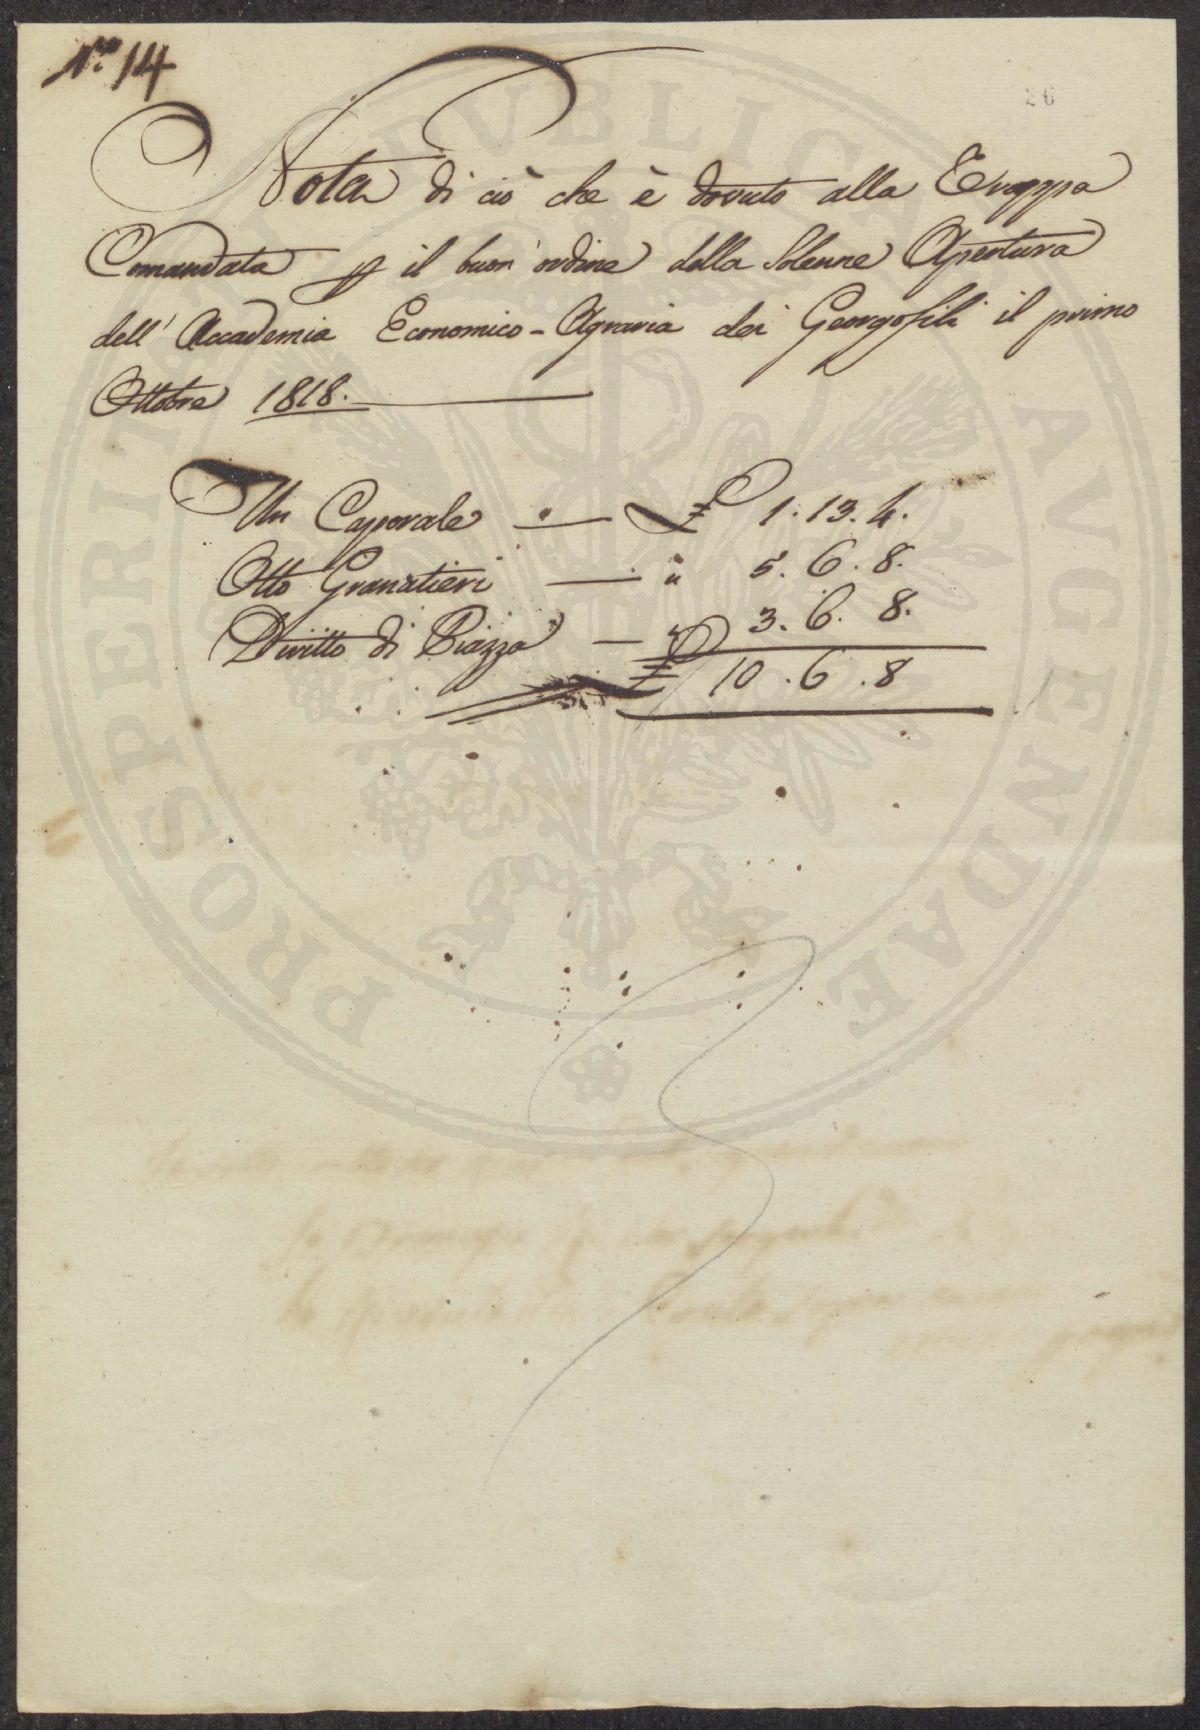 N.º 14
26
Nota di ciò che è dovuto alla Truppa
Comandata p il buon' ordine della Solenne Apertura
dell' Accademia Economico-Agraria dei Georgofili il primo
Ottobre 1818.
Un Caporale — £ 1.13.4.
Otto Granatieri — " 5.6.8.
Diritto di Piazza — " 3.6.8.
£ 10.6.8
PROSPERITATI PUBLICAE AUGENDAE